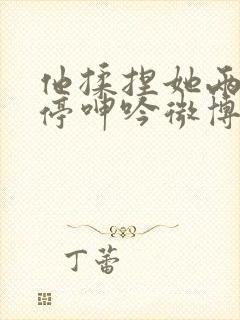 他揉捏她两
停呻吟微博
丁蕾